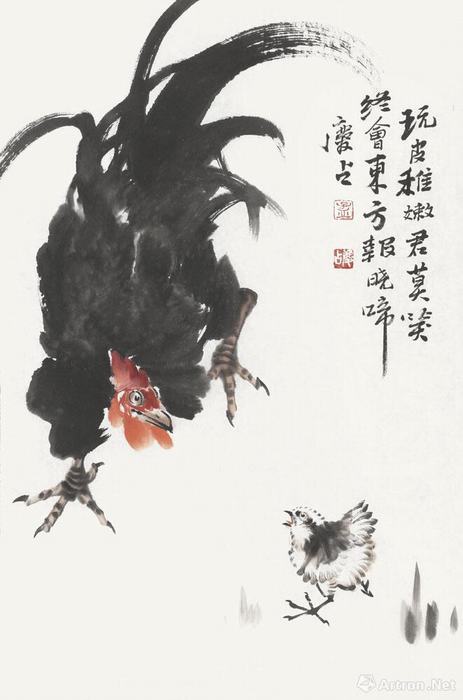 玩皮稚嫩君莫笑
终會東方報晓啼
慶占
Artron.Net